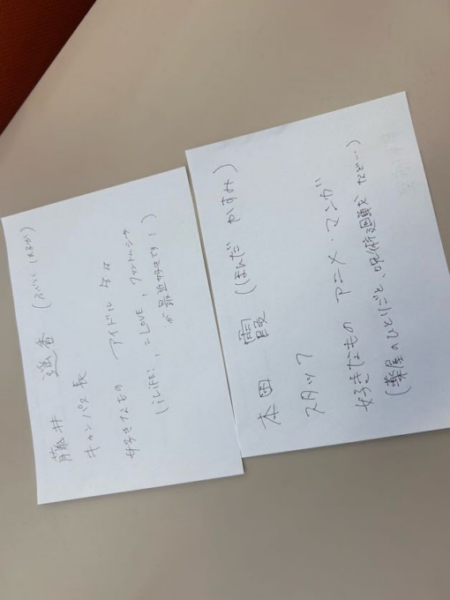 藤井 遥香 (ふじい はるか)
キャンパス長
好きなもの アイドル など
(iLiFE!, =LOVE, ファントムシータ
が最近好きです!)
本田 霞 (ほんだ かすみ)
スタッフ
好きなもの アニメ・マンガ
(薬屋のひとりごと、呪術廻戦 など…)